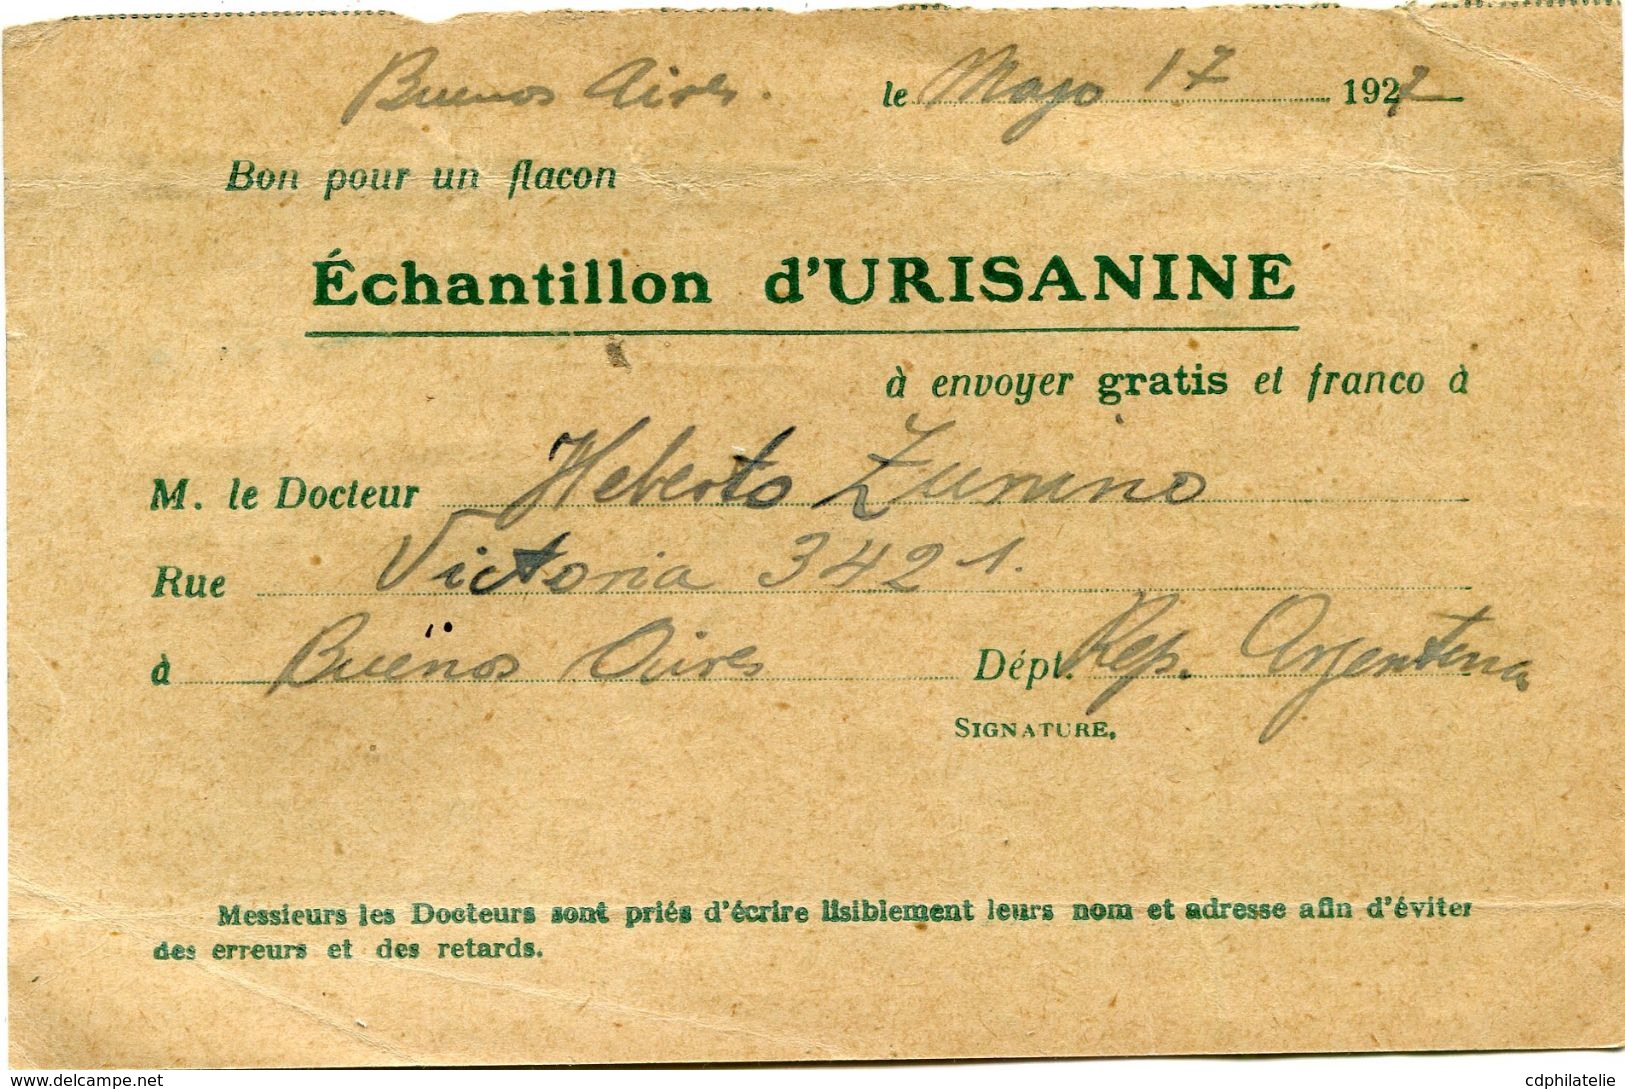 Buenos Aires. le Mayo 17 1927
Bon pour un flacon
Échantillon d'URISANINE
à envoyer gratis et franco à
M. le Docteur Heberto Zunino
Rue Victoria 3421.
à Buenos Aires Dépt. Rep. Argentina
SIGNATURE,
Messieurs les Docteurs sont priés d'écrire lisiblement leurs nom et adresse afin d'éviter
des erreurs et des retards.
delcampe.net
cdphilatelie